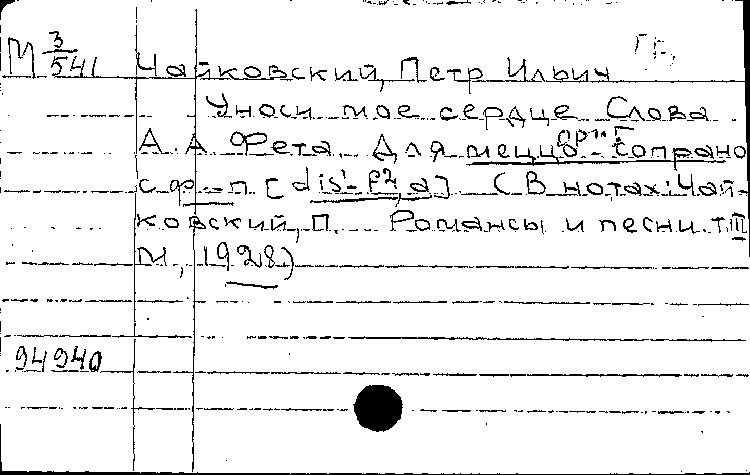 М 3/541 Чайковский, Петр Ильич
Уноси мое сердце Слова
А. А Фета. Для меццо-сопрано
ориг
с ф-п [dis¹-f²,a] (В нотах: Чай-
ковский, П. Романсы и песни. т. III
М, 1928)
94940